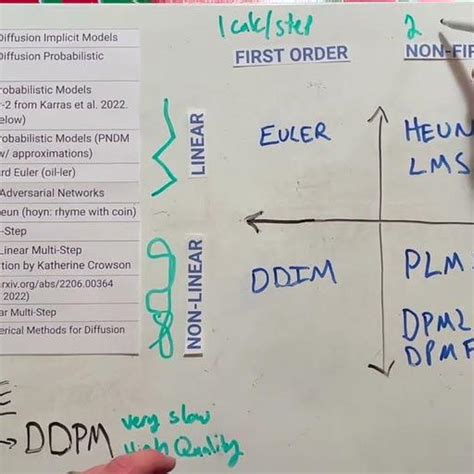 1 calc/step
2
FIRST ORDER
NON-FI
Diffusion Implicit Models
Diffusion Probabilistic
robabilistic Models
-2 from Karras et al. 2022.
elow)
robabilistic Models (PNDM
w/ approximations)
rd Euler (oil-ler)
Adversarial Networks
eun (hoyn: rhyme with coin)
-Step
Linear Multi-Step
tion by Katherine Crowson
arxiv.org/abs/2206.00364
2022)
ar Multi-Step
erical Methods for Diffusion
LINEAR
EULER
HEUN
LMS
NON-LINEAR
DDIM
PLM
DPM2
DPM F
E
→ DDPM
very slow
High Quality